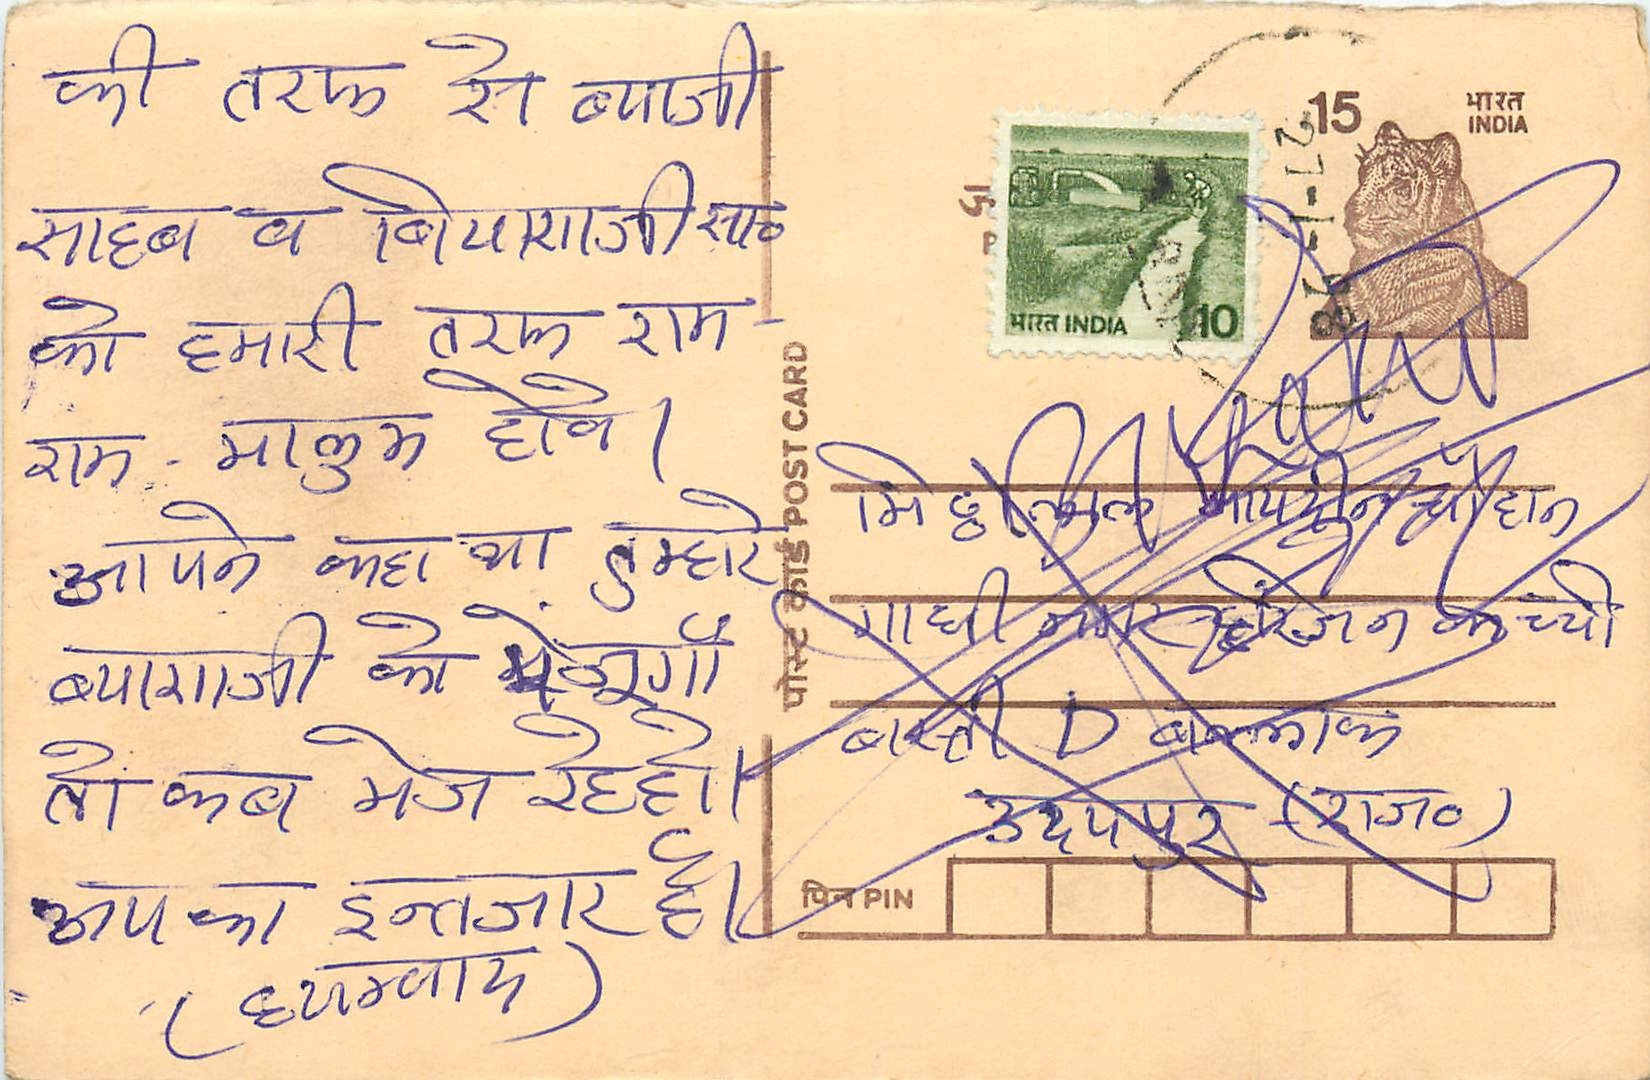 की तरफ से ब्याजी
साहब व बियाशाजी सा०
को हमारी तरफ राम-
राम - मालुम होवे।
आपने कहा था तुम्हारे
ब्याशाजी को भेजूगाँ
तो कब भेज रहे हो।
आपका इन्तजार है।
(धन्यवाद)
15 भारत
INDIA
27-1-86
भारत INDIA 10
पोस्ट कार्ड POST CARD
चौहान
गाधी नगर हरिजन कच्ची
बस्ती D बल्लाक
उदयपुर (राज०)
पिन PIN